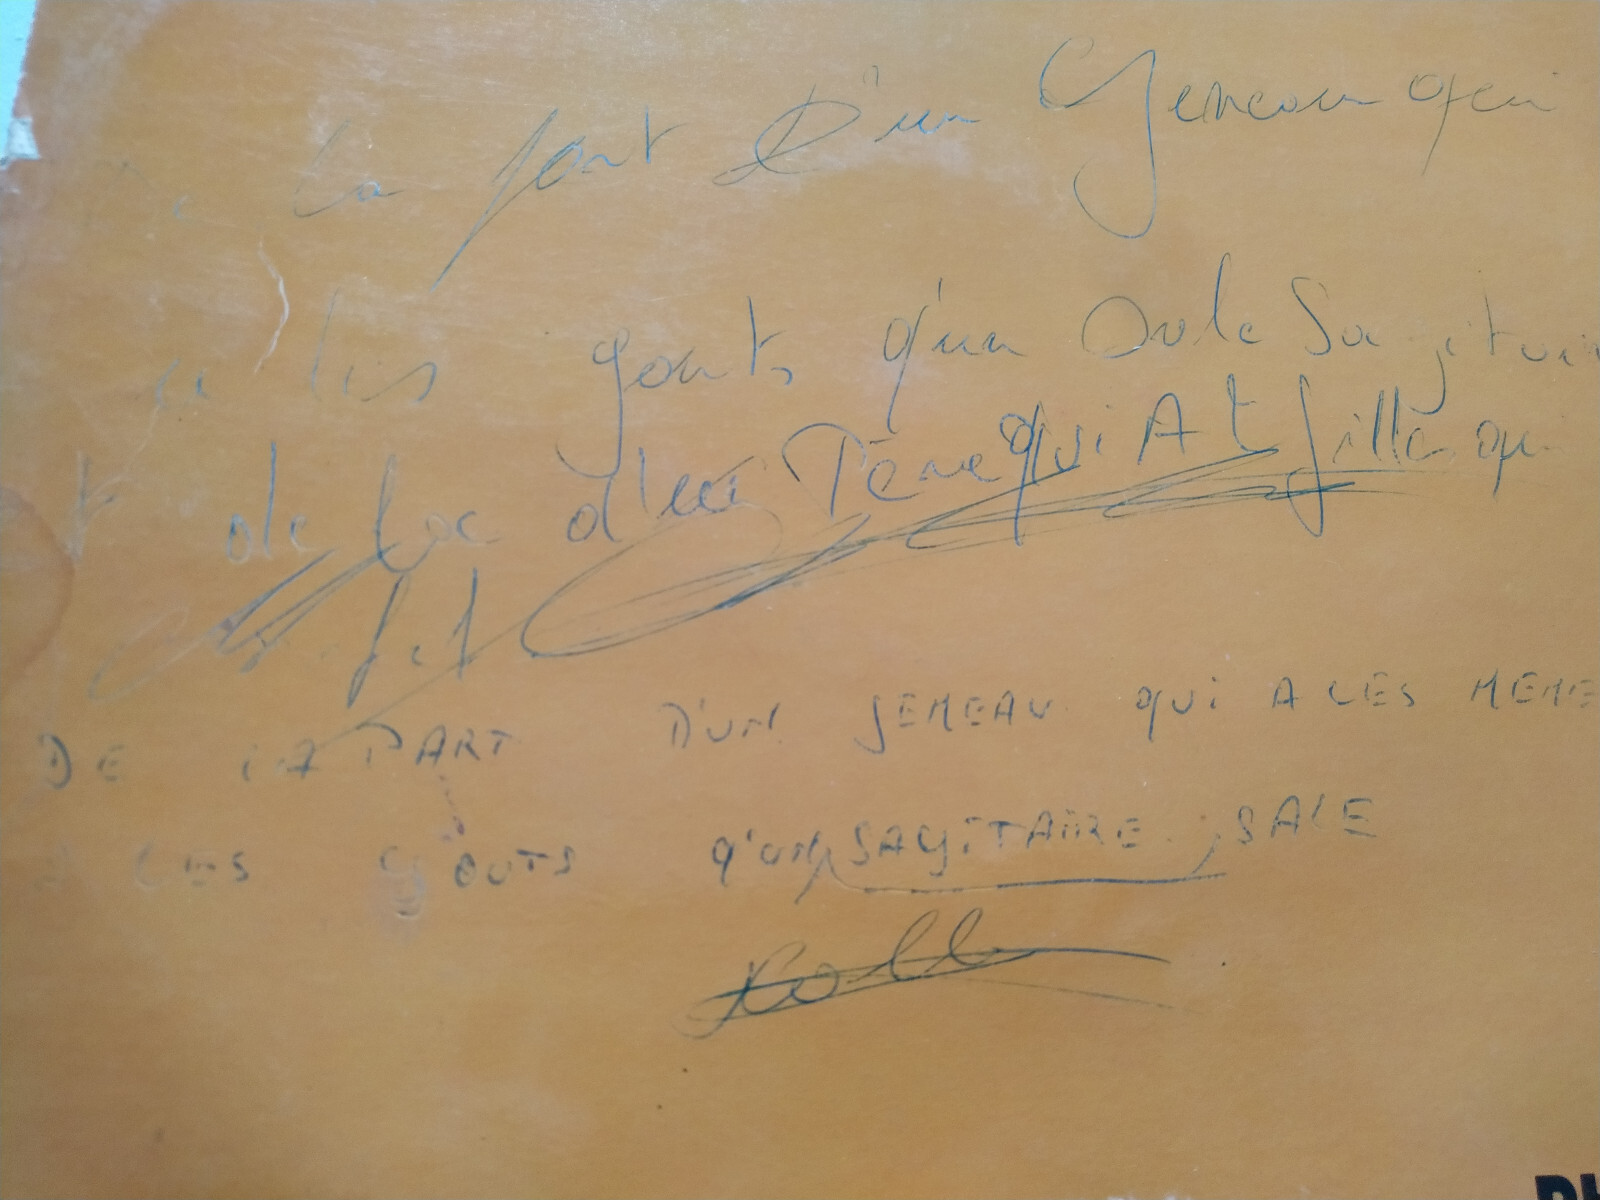 De la part D'un Gemeau qui
a les gouts q'un sale Sagitair
t de la d'un Père qui A t filles qui
DE LA PART D'UN GEMEAU QUI A LES MEME
LES GOUTS Q'UN SAGITAIRE SALE